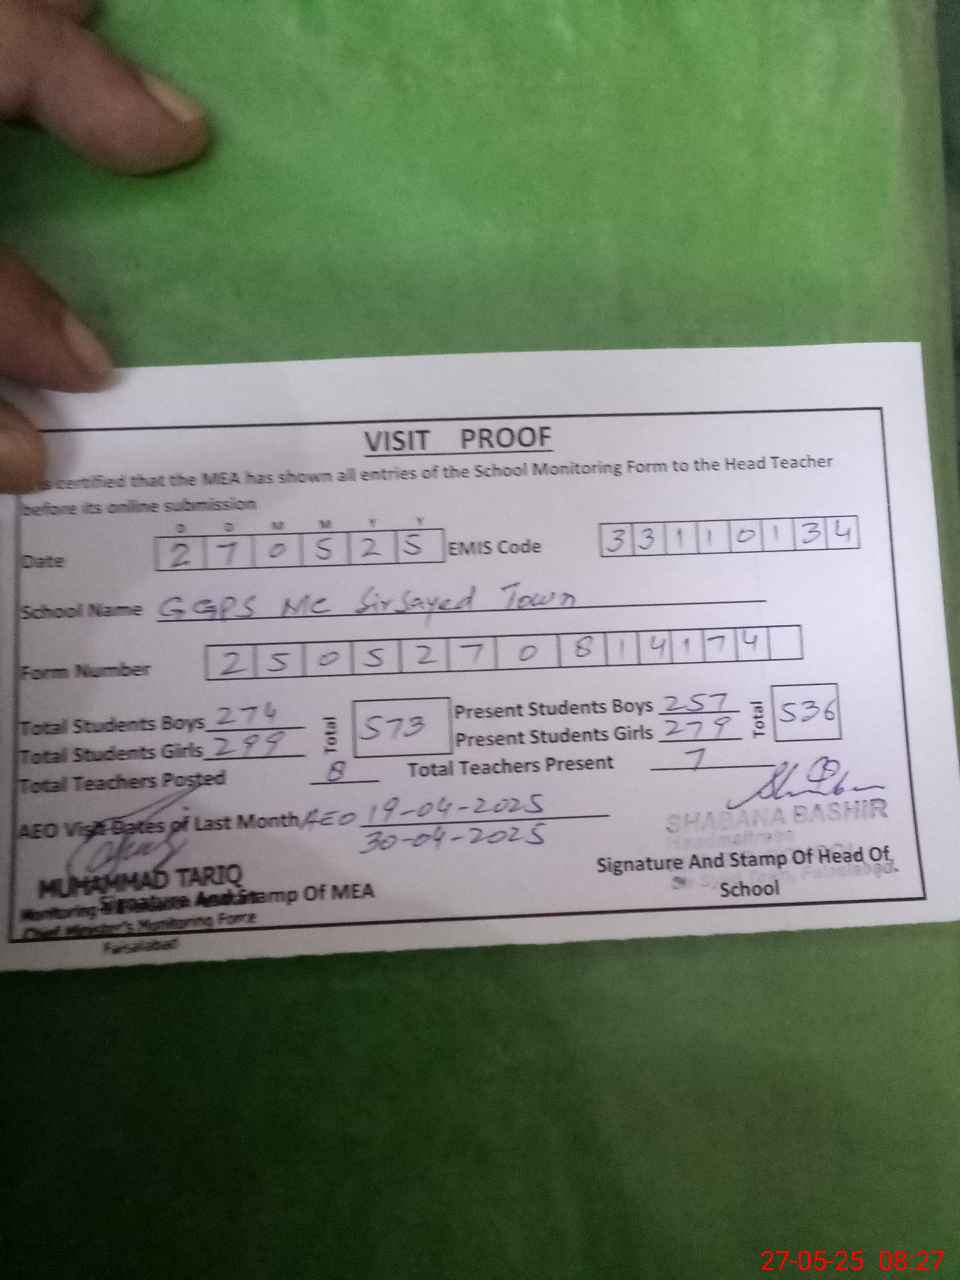 VISIT PROOF
is certified that the MEA has shown all entries of the School Monitoring Form to the Head Teacher
before its online submission
D D M M Y Y
Date 2 7 0 5 2 5 EMIS Code 3 3 1 1 0 1 3 4
School Name GGPS MC Sir Sayed Town
Form Number 2 5 0 5 2 7 0 8 1 4 1 7 4
Total Students Boys 274 Total 573 Present Students Boys 257 Total 536
Total Students Girls 299 Present Students Girls 279
Total Teachers Posted 8 Total Teachers Present 7
AEO Visit Dates of Last Month AEO 19-04-2025
30-04-2025
SHABANA BASHIR
Headmistress
MUHAMMAD TARIQ
Signature And Stamp Of Head Of
School
Faisalabad.
Monitoring &
Signature And Stamp Of MEA
Chief Minister's Monitoring Force
Faisalabad
27-05-25 08:27